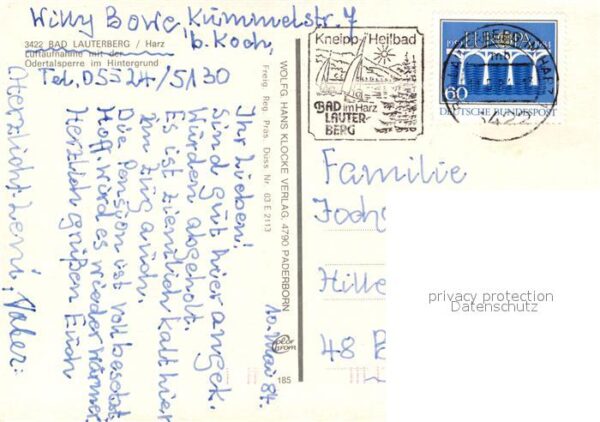 Willy Bovie, Kummelstr. 7
b. Koch,
3422 BAD LAUTERBERG / Harz
Luftaufnahme mit der
Odertalsperre im Hintergrund
Tel. 05524/5130
10. Mai 84.
Ihr Lieben!
Sind gut hier angek.
Würden abgeholt.
Es ist ziemlich kalt hier
im Zug auch.
Die Pension ist voll besetzt.
Hoff. wird es wieder wärmer
Herzlich grüßen Euch
Herzlichst Leni,
WOLFG. HANS KLOCKE VERLAG, 4790 PADERBORN
Freig. Reg. Präs. Düss. Nr. 03 E 2113
Color Chrom
185
Kneipp-Heilbad
BAD im Harz
LAUTER-
BERG
EUROPA
60
DEUTSCHE BUNDESPOST
3422
Familie
Joch
Hille
48 B
privacy protection
Datenschutz